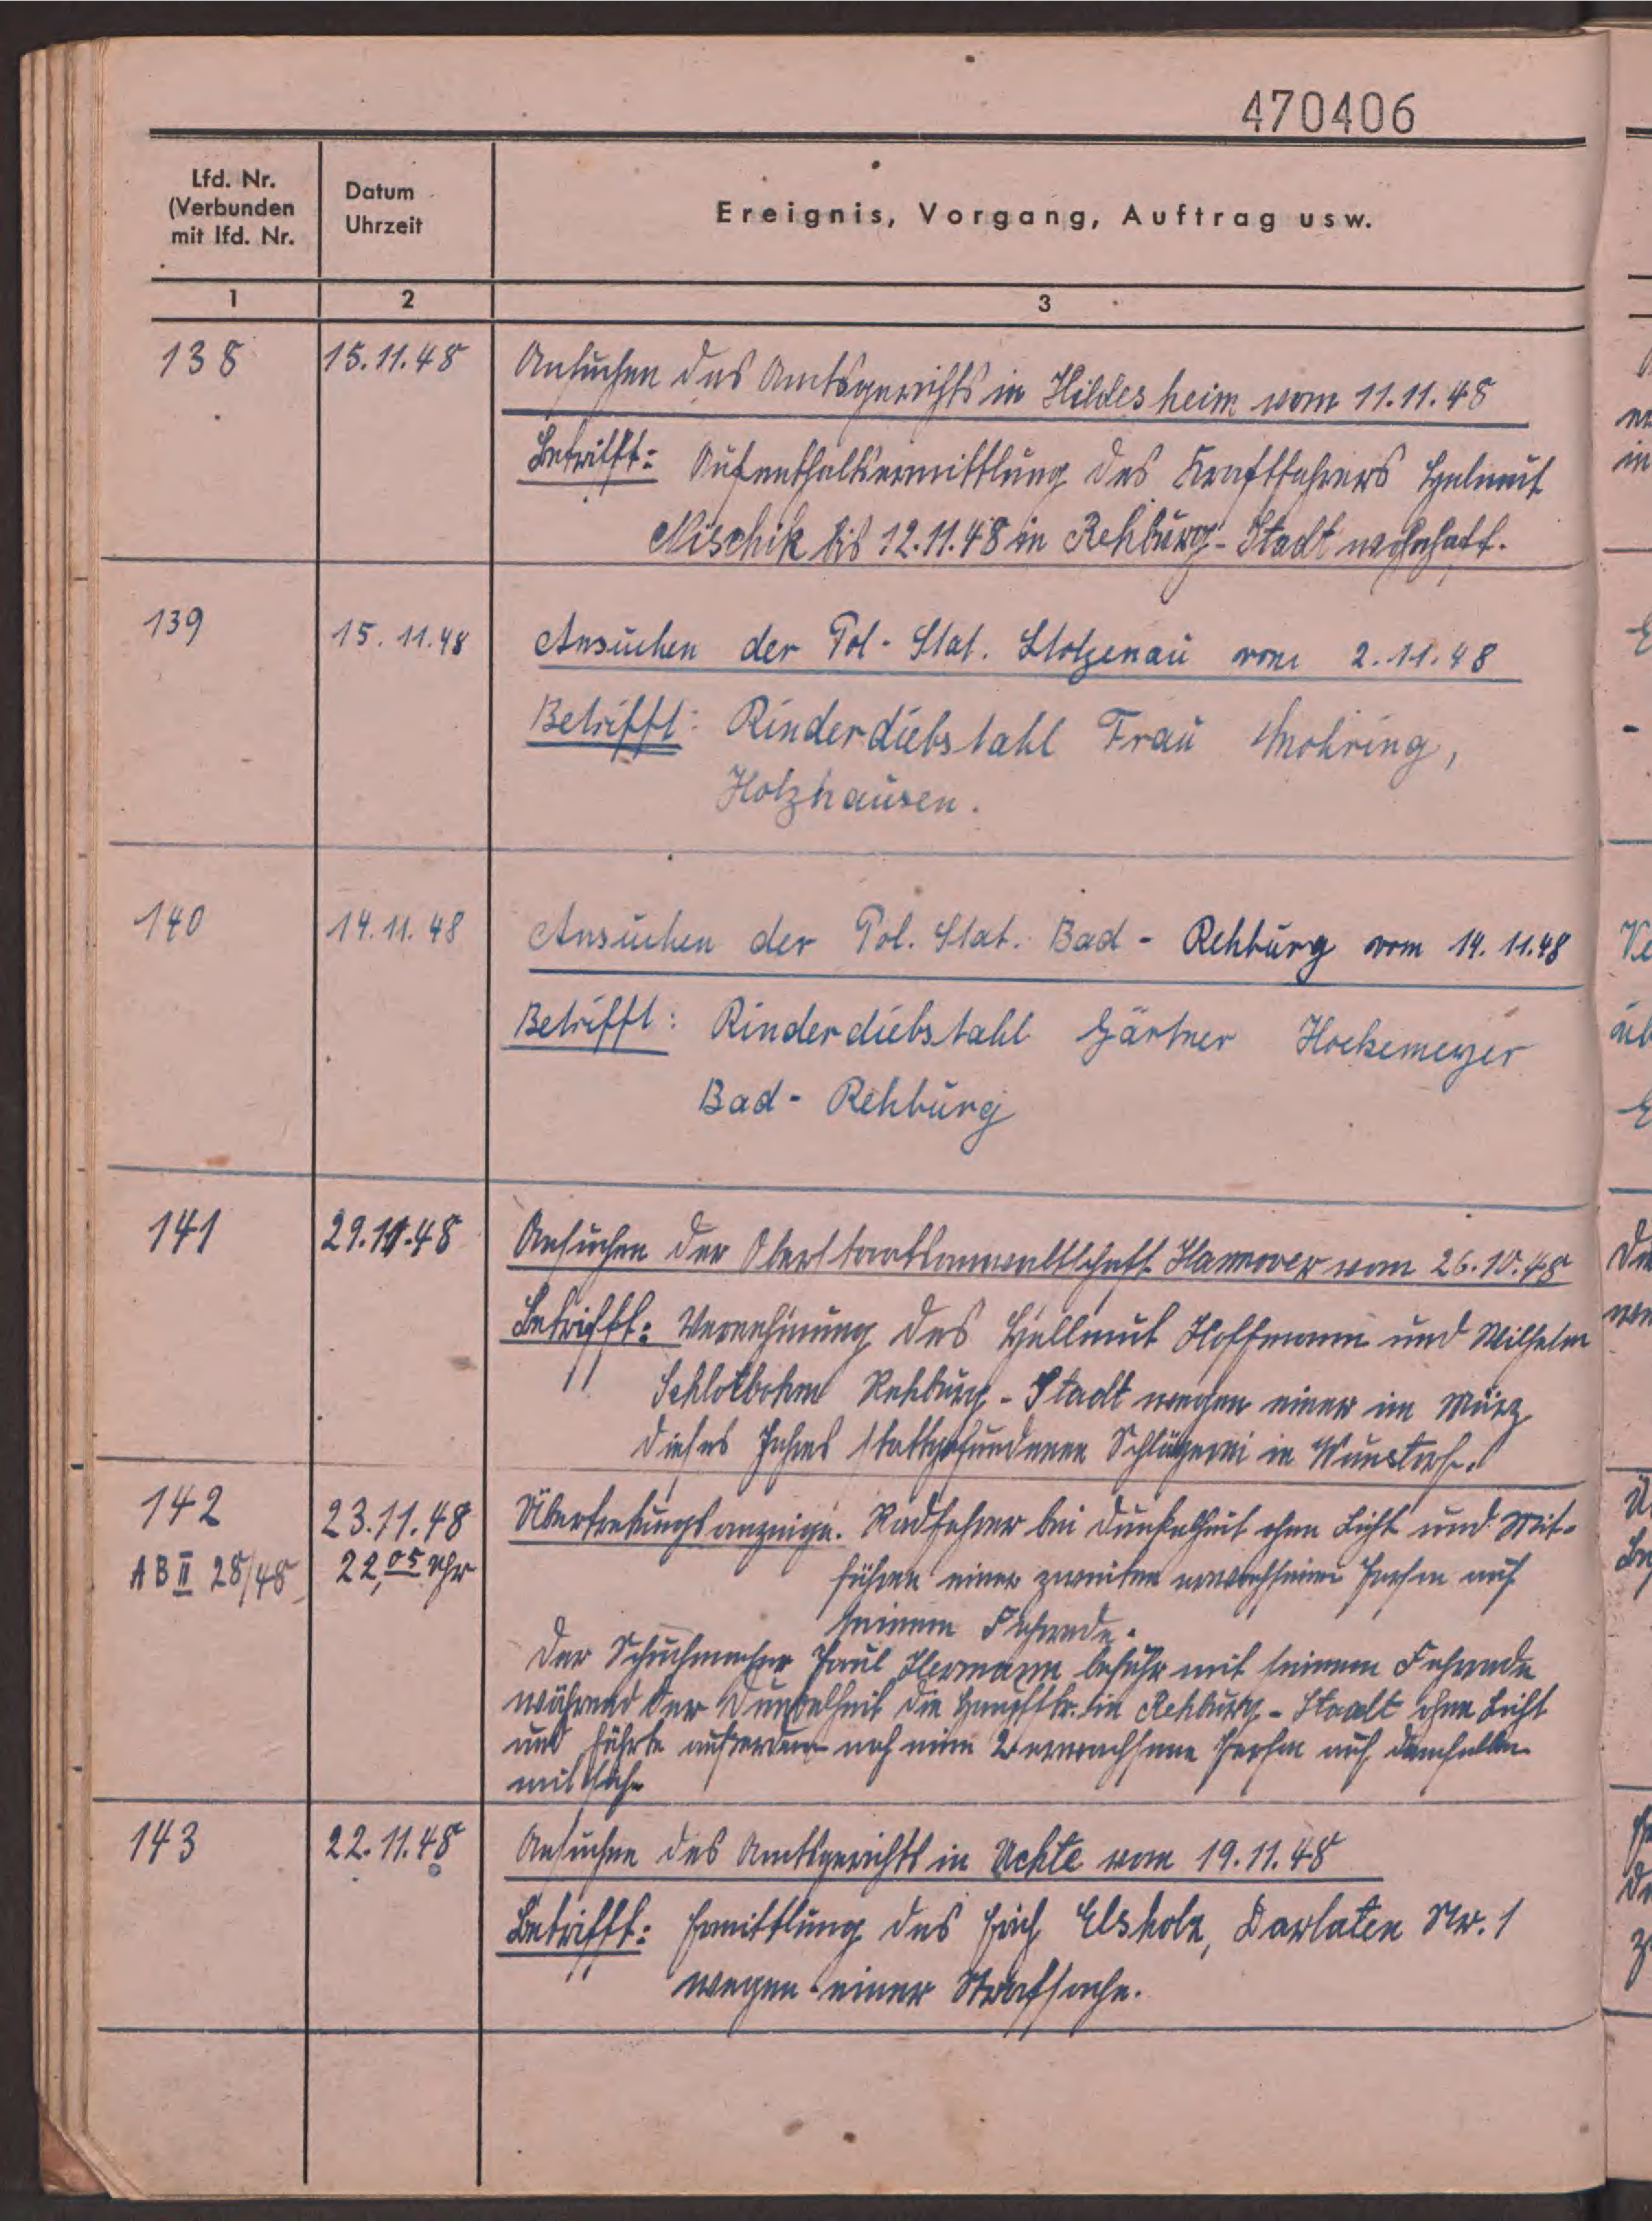 470406
Lfd. Nr.
(Verbunden
mit lfd. Nr.
Datum
Uhrzeit
Ereignis, Vorgang, Auftrag usw.
1 2 3
138 15.11.48 Ansuchen des Amtsgerichts in Hildesheim vom 11.11.48
Betrifft: Aufenthaltsermittlung des Kraftfahrers Helmut
Mischik bis 12.11.48 in Rehburg-Stadt wohnhaft.
139 15.11.48 Ansuchen der Pol-Stat. Stolzenau vom 2.11.48
Betrifft: Rinderdiebstahl Frau Mohring,
Holzhausen.
140 14.11.48 Ansuchen der Pol. Stat. Bad-Rehburg vom 14.11.48
Betrifft: Rinderdiebstahl Gärtner Hockemeyer
Bad-Rehburg
141 29.11.48 Ansuchen der Oberstaatsanwaltschaft Hannover vom 26.10.48
Betrifft: Vernehmung des Hellmut Hoffmann und Wilhelm
Schlotbohm Rehburg-Stadt wegen einer im März
dieses Jahres stattgefundenen Schlägerei in Wunstorf.
142 23.11.48 Übertretungsanzeige. Radfahrer bei Dunkelheit ohne Licht und Mit-
AB II 28/48 22,05 Uhr führen einer zweiten erwachsenen Person auf
seinem Fahrrade.
Der Schuhmacher Paul Hermann befuhr mit seinem Fahrrade
während der Dunkelheit die Hauptstr. in Rehburg-Stadt ohne Licht
und führte außerdem noch eine 2. erwachsene Person auf demselben
mit sich.
143 22.11.48 Ansuchen des Amtsgerichts in Uchte vom 19.11.48
Betrifft: Ermittlung des Erich Elsholz, Darlaten Nr. 1
wegen einer Strafsache.